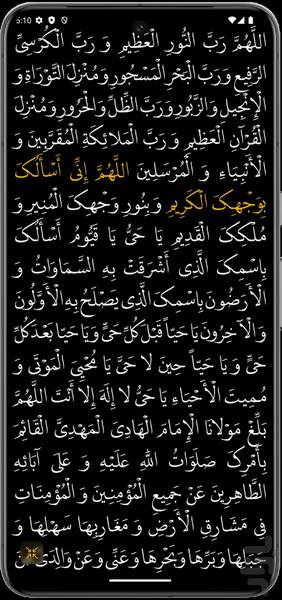 5:10
اَللّٰهُمَّ رَبَّ النُّورِ الْعَظِيمِ وَ رَبَّ الْكُرْسِيِّ
الرَّفِيعِ وَ رَبَّ الْبَحْرِ الْمَسْجُورِ وَ مُنْزِلَ التَّوْرَاةِ وَ
الْإِنْجِيلِ وَ الزَّبُورِ وَ رَبَّ الظِّلِّ وَ الْحَرُورِ وَ مُنْزِلَ
الْقُرْآنِ الْعَظِيمِ وَ رَبَّ الْمَلَائِكَةِ الْمُقَرَّبِينَ وَ
الْأَنْبِيَاءِ وَ الْمُرْسَلِينَ اَللّٰهُمَّ إِنِّي أَسْأَلُكَ
بِوَجْهِكَ الْكَرِيمِ وَ بِنُورِ وَجْهِكَ الْمُنِيرِ وَ
مُلْكِكَ الْقَدِيمِ يَا حَيُّ يَا قَيُّومُ أَسْأَلُكَ
بِاسْمِكَ الَّذِي أَشْرَقَتْ بِهِ السَّمَاوَاتُ وَ
الْأَرَضُونَ بِاسْمِكَ الَّذِي يَصْلَحُ بِهِ الْأَوَّلُونَ
وَ الْآخِرُونَ يَا حَيّاً قَبْلَ كُلِّ حَيٍّ وَ يَا حَيّاً بَعْدَ كُلِّ
حَيٍّ وَ يَا حَيّاً حِينَ لَا حَيَّ يَا مُحْيِيَ الْمَوْتَى وَ
مُمِيتَ الْأَحْيَاءِ يَا حَيُّ لَا إِلَهَ إِلَّا أَنْتَ اللّٰهُمَّ
بَلِّغْ مَوْلَانَا الْإِمَامَ الْهَادِيَ الْمَهْدِيَّ الْقَائِمَ
بِأَمْرِكَ صَلَوَاتُ اللّٰهِ عَلَيْهِ وَ عَلَى آبَائِهِ
الطَّاهِرِينَ عَنْ جَمِيعِ الْمُؤْمِنِينَ وَ الْمُؤْمِنَاتِ
فِي مَشَارِقِ الْأَرْضِ وَ مَغَارِبِهَا سَهْلِهَا وَ
جَبَلِهَا وَ بَرِّهَا وَ بَحْرِهَا وَ عَنِّي وَ عَنْ وَالِدَيَّ